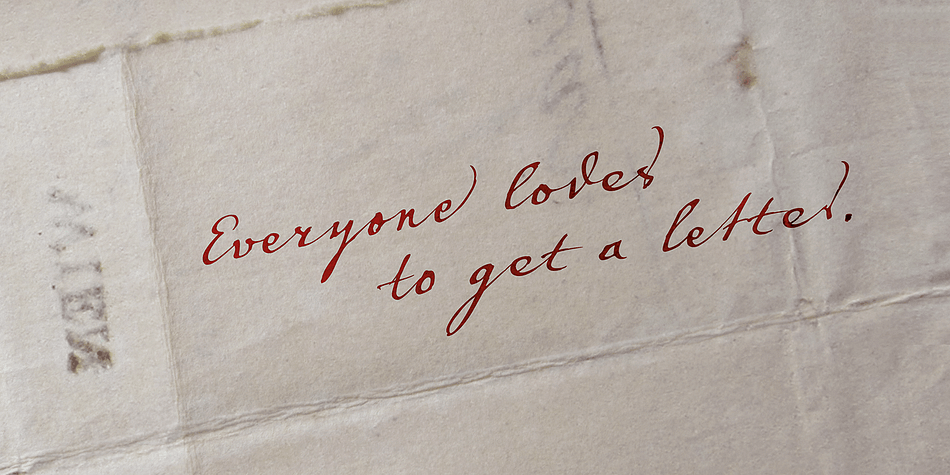 Everyone loves
to get a letter.